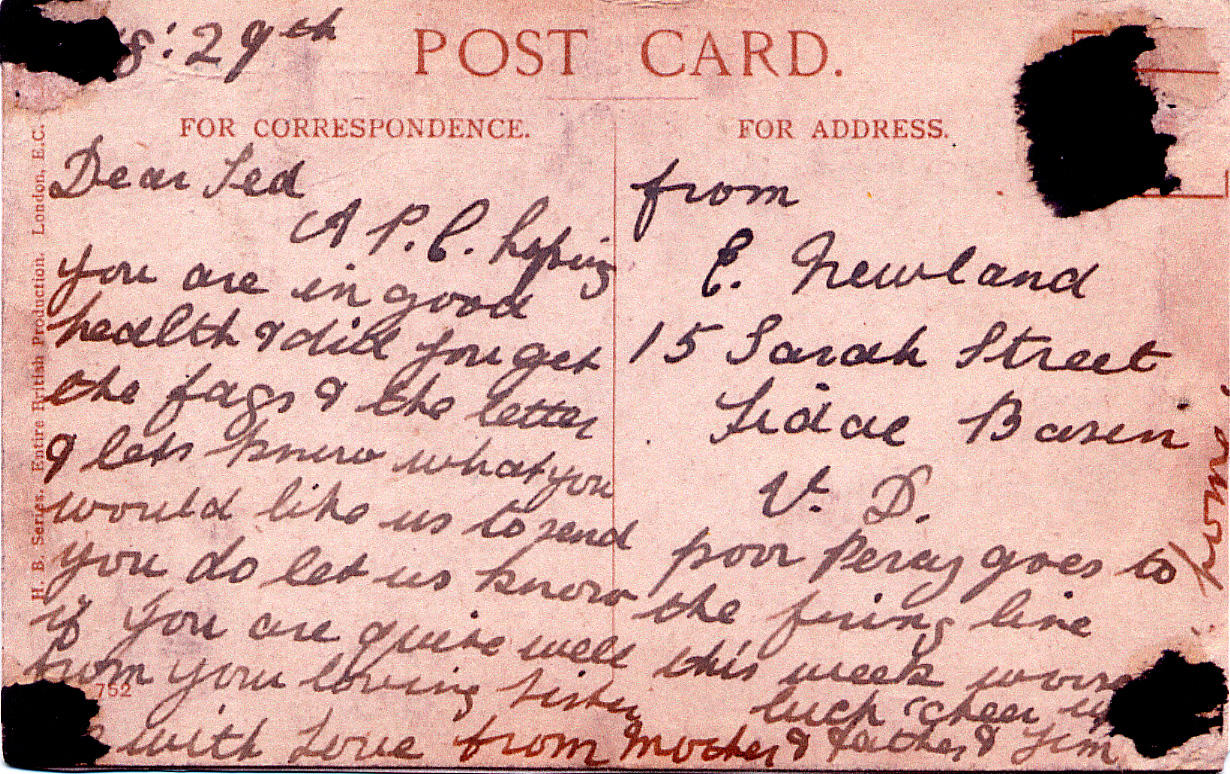 8: 29th
POST CARD.
FOR CORRESPONDENCE.
Dear Ted
A P.C. hoping
you are in good
health & did you get
the fags & the letter
& lets know what you
would like us to send
you do let us know
if you are quite well
from your loving sister
with Love from Mother & father & Jim
FOR ADDRESS.
from
E. Newland
15 Sarah Street
Tidal Basin
V. D.
poor Percy goes to
the firing line
this week worse
luck cheer up
from
H. B. Series. Entire British Production. London, E.C.
752